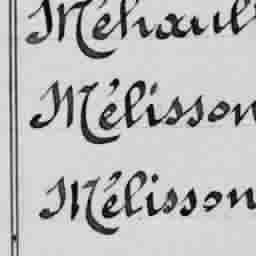 Méhaul
Mélisson
Mélisson